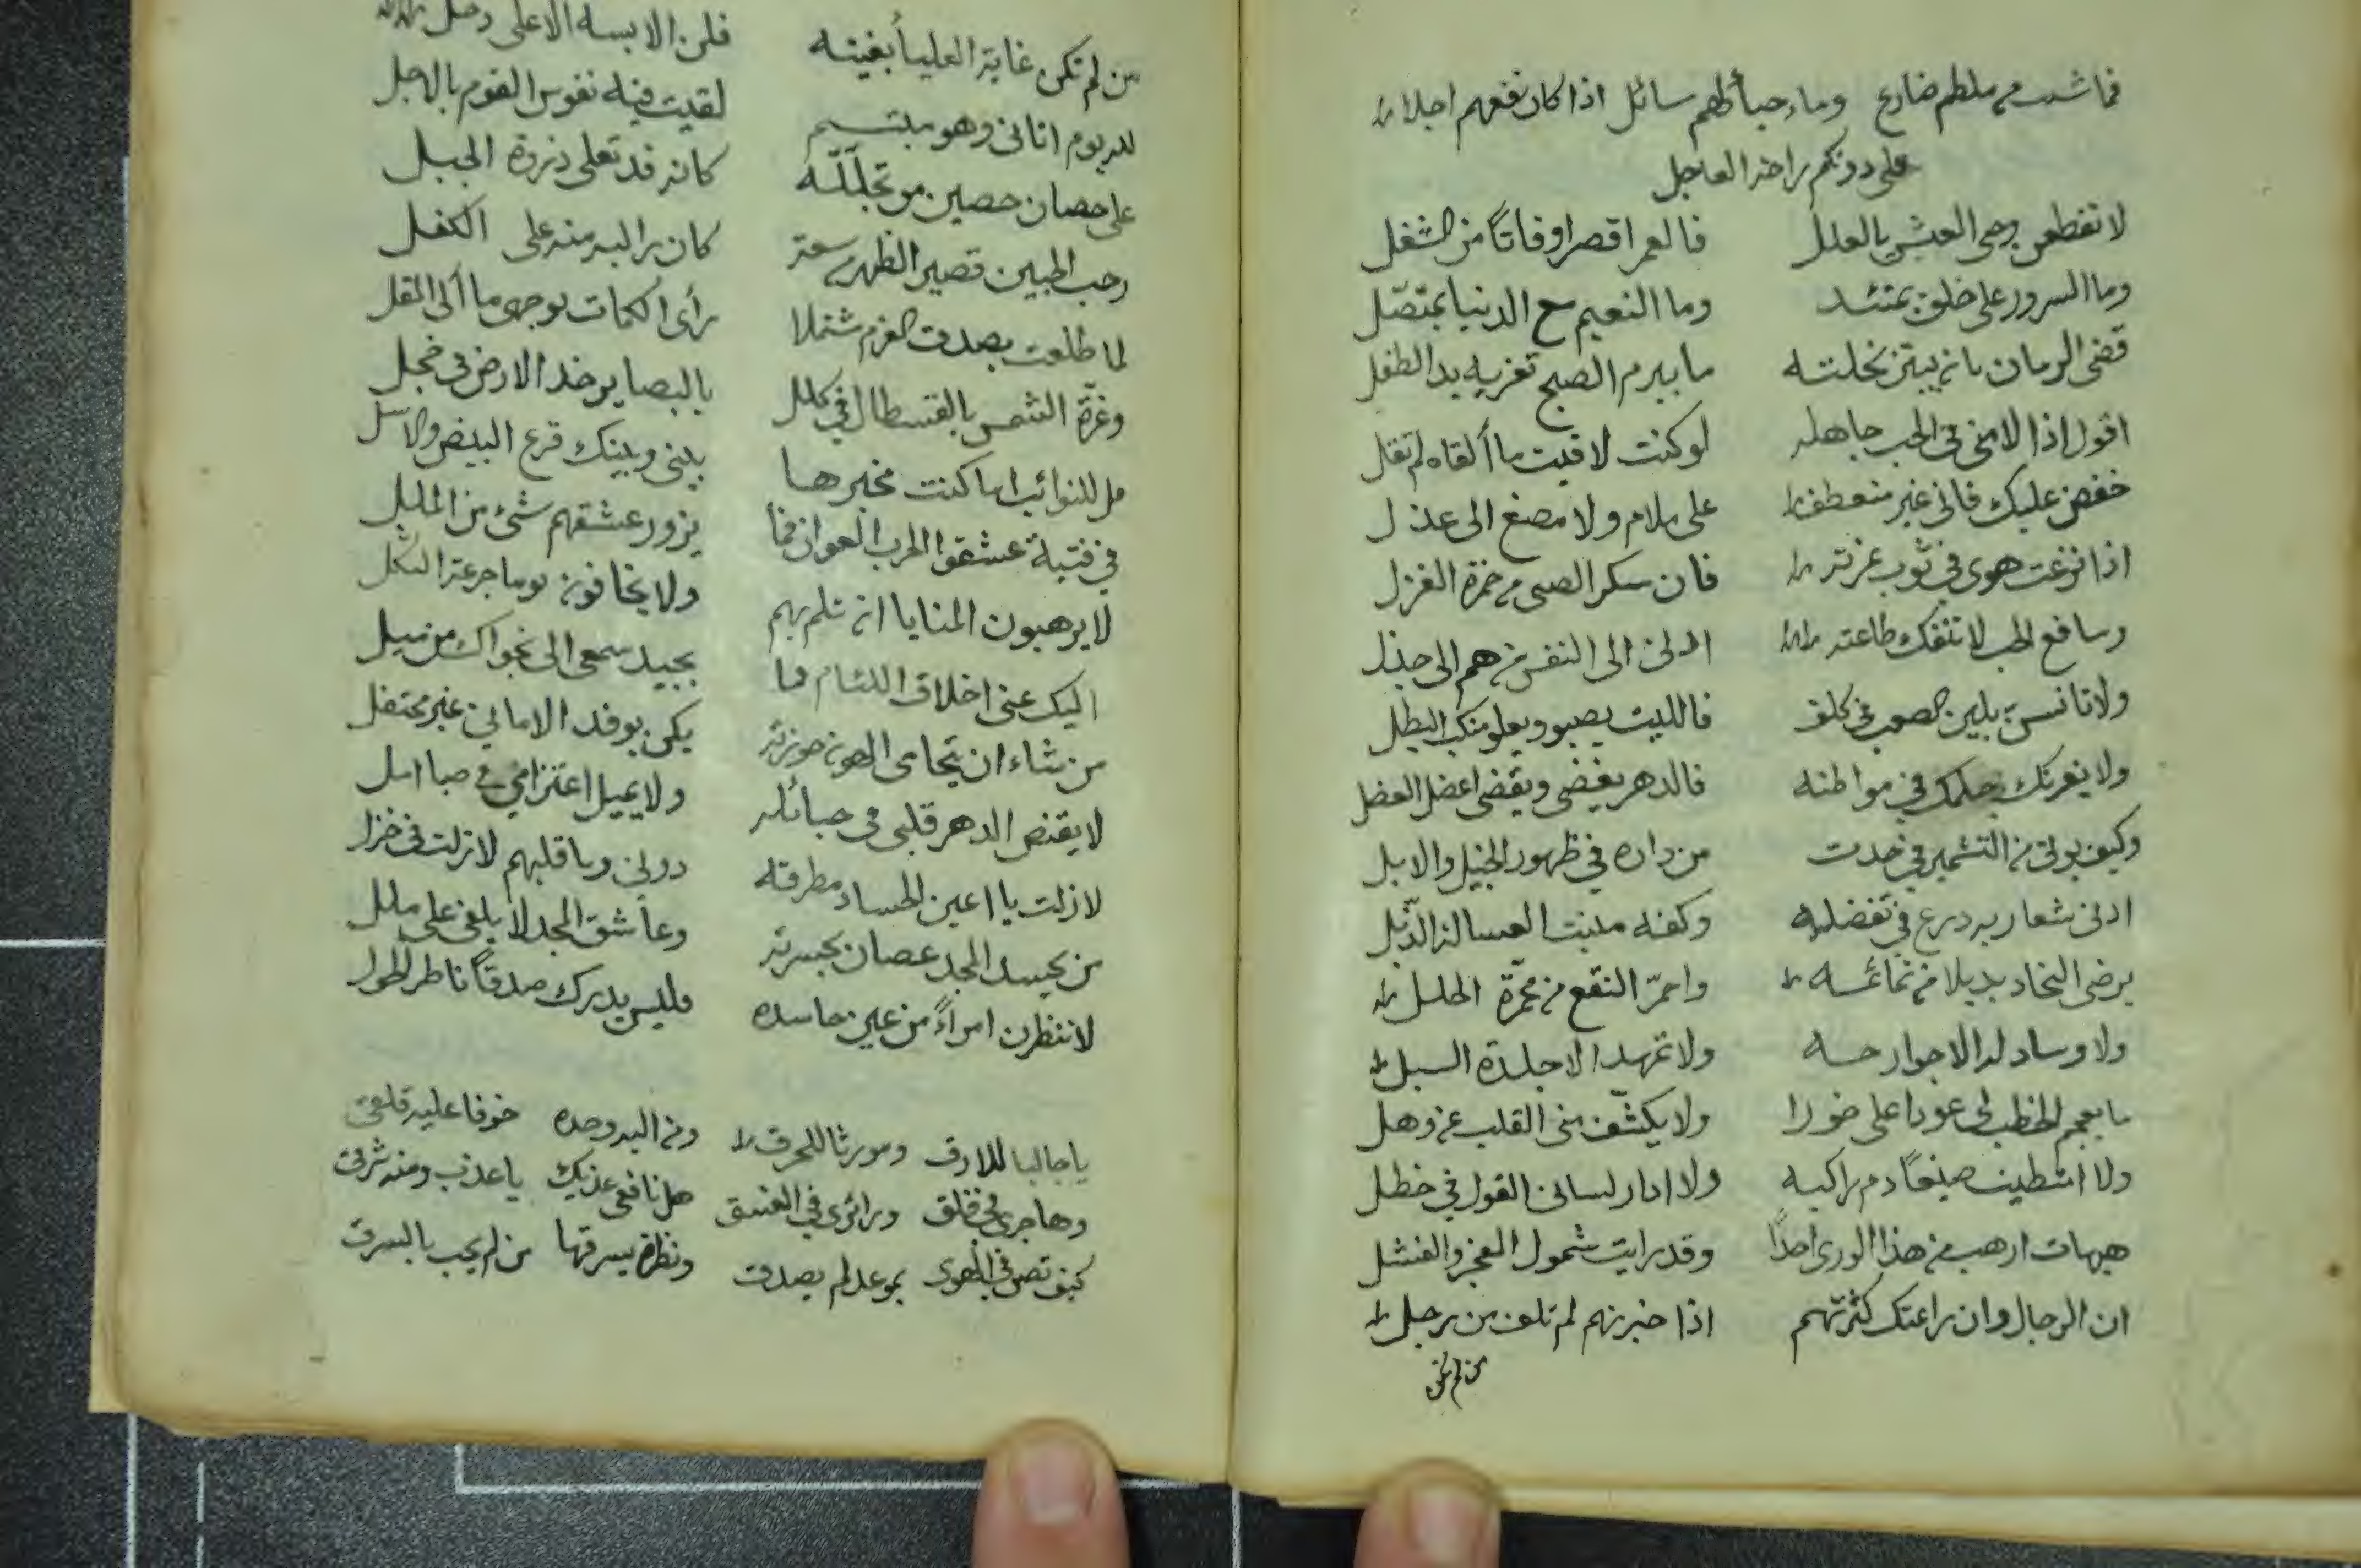 فما شئت من ملطم ضارع وما رحبا لطم سائل اذا كان نفعهم اجلا
على دونكم راحة العاجل
لا تقطعن وحى العيش بالعلل فالعمر اقصر اوقاتاً من الشغل
وما السرور على خلق بمتئد وما النعيم مع الدنيا بمتصل
قضى الزمان بان يبتز نحلته ما يبرم الصبح تغريه يد الطفل
اقول اذا لامنى فى الحب جاهله لو كنت لاقيت ما ألقاه لم تقل
خفض عليك فانى غير منعطف على ملام ولا مصغ الى عذل
اذا نزعت هوى فى ثوب عزته فان سكر الصبى من خمرة الغزل
وسافع الحب لا تنفك طاعته ادنى الى النفس من هم الى جذل
ولا تانسن بلين الصعب فى كلف فالليث يصبو ويعلو منكب البطل
ولا يغرنك حلمك فى مواطنه فالدهر يغضى ويقضى اعضل العضل
وكيف يونى من التشمير فى خدت من داره فى ظهور الخيل والابل
ادنى شعاريه درع فى تفضله وكفه منبت العسالة الذبل
يرضى النجاد بديلا من تمائمه واحمر النقع من محمرة الحلل
ولا وساد له الا جوارحه ولا تمهد الا جلدة السبل
ما يعجم الخطب لى عودا على خور ولا يكشف منى القلب عن وهل
ولا امتطيت صنيعاً ذم راكبه ولا ادار لسانى القول فى خطل
هيهات ارهب من هذا الورى احداً وقد رايت شمول العجز والفشل
ان الرجال وان راعتك كثرتهم اذا خبرتهم لم تلف من رجل
من لم تكن
من لم تكن غاية العلياء بغيته فلن الابسه الا على دخل
لله يوم اتانى وهو مبتسم لقيت فيه نفوس القوم بالوجل
على حصان حصين من تجلله كانه قد تعلى ذروة الجبل
رحب الجبين قصير الظهر من سعة كان راكبه منه على الكفل
لما طلعت بصدق العزم مشتملا رأى الكمات بوجهى ما ألى المقل
وغرة الشمس بالقسطال فى كلل بالبصا يرخد الارض فى خجل
مل للنوائب اما كنت مخبرها بينى وبينك قرع البيض والاسل
فى فتية عشقوا الحرب العوان فما يزور عشقهم شئ من الملل
لا يرهبون المنايا ان تلم بهم ولا يخافون يوما جرعة الثكل
اليك عنى اخلاق اللئام فما بجيد سمعى الى نجواك من ميل
من شاء ان يتحامى الهون حوزته يكن بوفد الامانى غير محتفل
لا يقنص الدهر قلبى فى حبائله ولا يميل اعتزامى فى صبا امل
لازلت يا اعين الحساد مطرقة دونى ويا قلبهم لازلت فى خزل
من يحسد المجد عصان بحسرته وعاشق المجد لا يلفى على ملل
لا تنظرن امرأً من عين حاسده فليس يدرك صدقاً ناظر الحول
يا جالبا للارق ومورثا للحرق ومن اليه وحده خوفا عليه قلقى
وهاجرى فى فلق وزائرى فى الغسق هل نافعى عذيك يا عذب ومنه شرقى
كيف تصن فى الهوى بموعد لم يصدق ونظرة يسرقها من لم يجب بالسرق